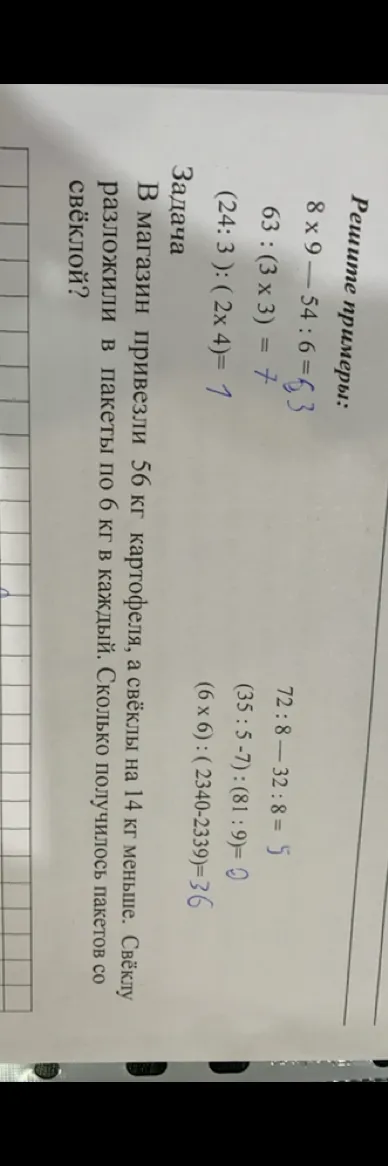 Решите примеры:
8 х 9 — 54 : 6 = 63
72 : 8 — 32 : 8 = 5
63 : (3 х 3) = 7
(35 : 5 -7) : (81 : 9)= 0
(24: 3 ) : ( 2х 4)= 1
(6 х 6) : ( 2340-2339)= 36
Задача
В магазин привезли 56 кг картофеля, а свёклы на 14 кг меньше. Свёклу
разложили в пакеты по 6 кг в каждый. Сколько получилось пакетов со
свёклой?